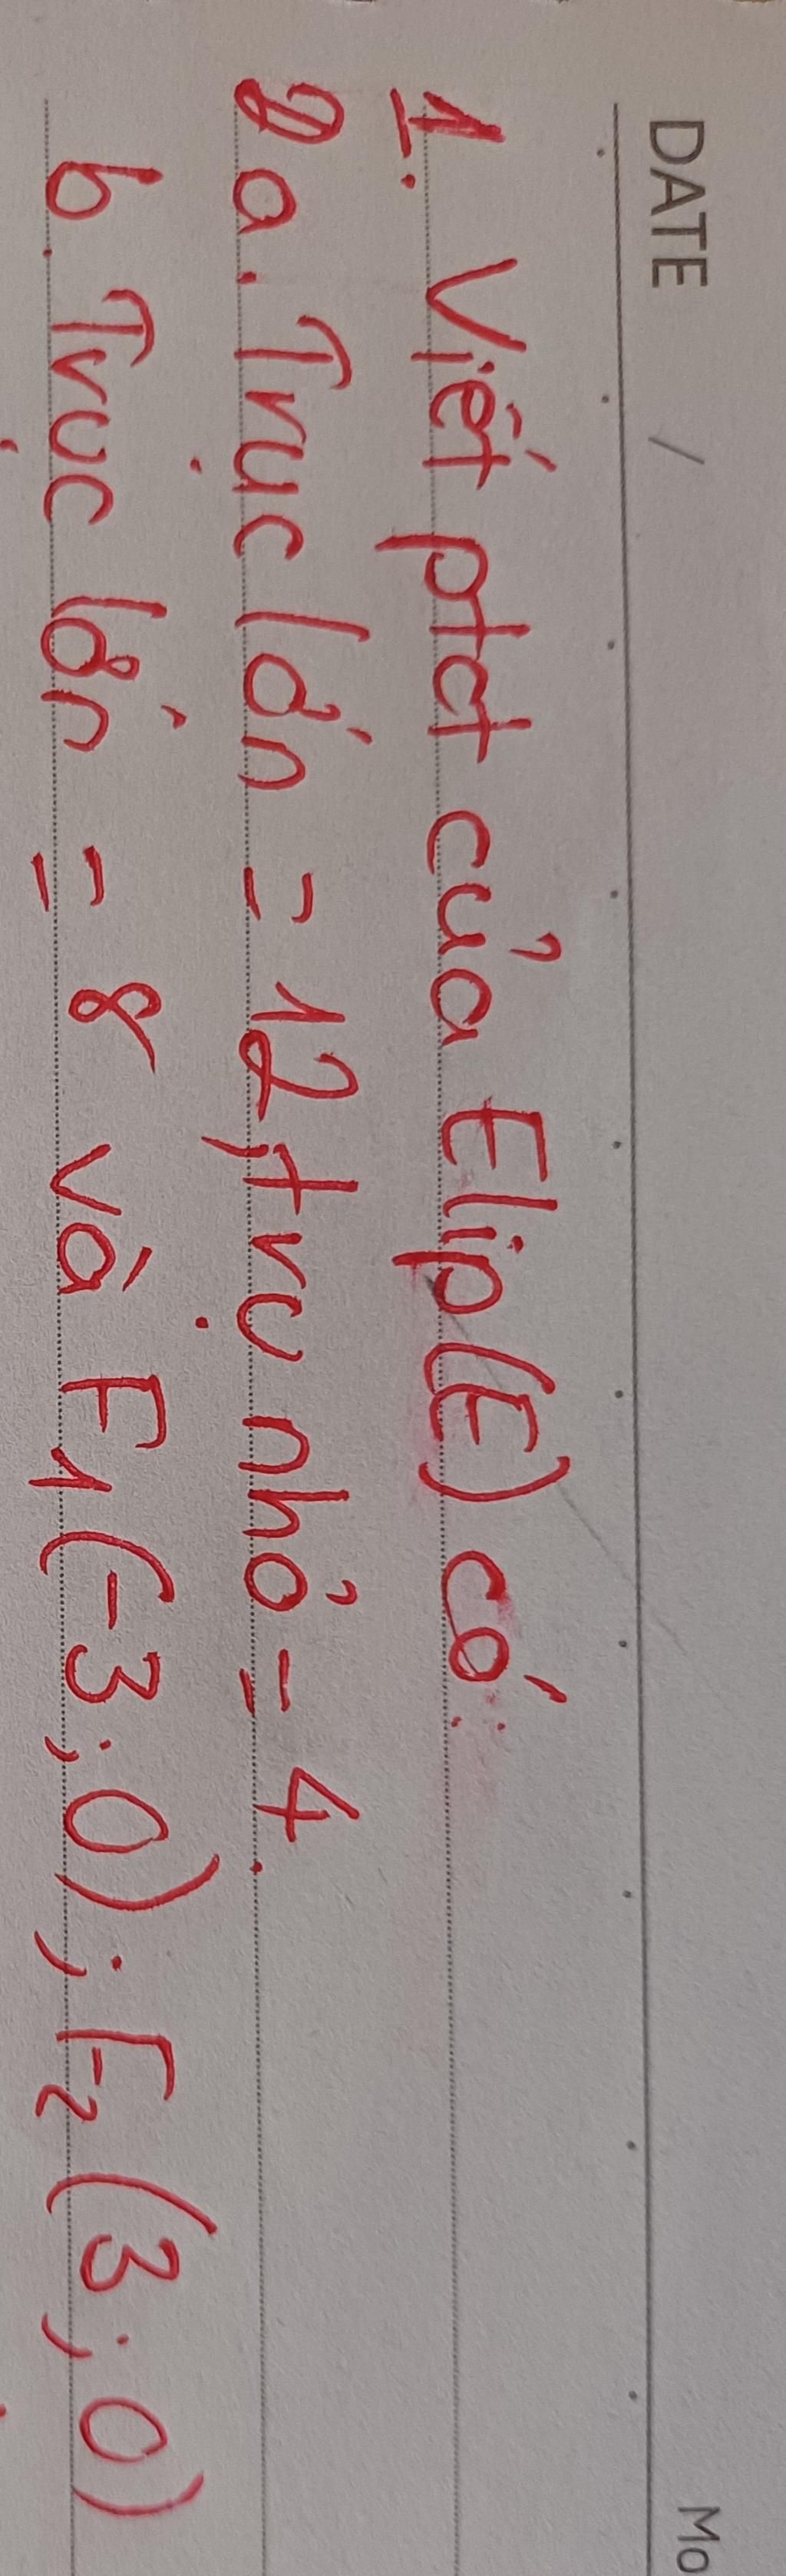 DATE / Mo
1. Viết ptct của Elip (E) có:
a. Trục lớn = 12, trụ nhỏ = 4.
b. Trục lớn = 8 và F1 (-3; 0); F2 (3; 0)